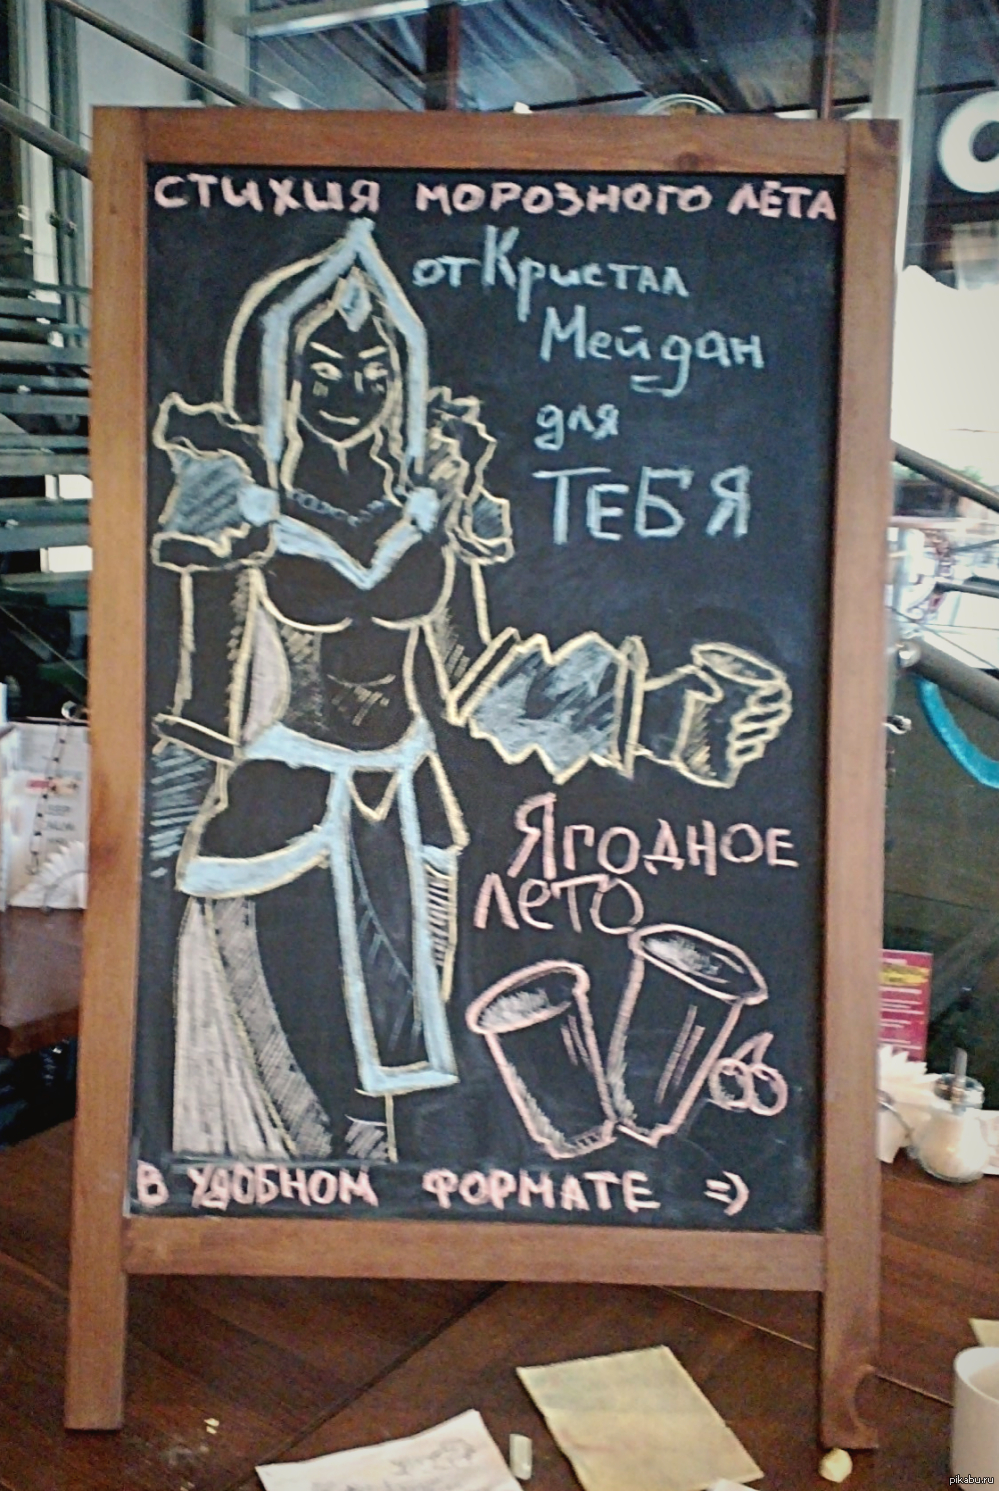 СТИХИЯ МОРОЗНОГО ЛЕТА
от Кристал
Мейдан
для
ТЕБЯ
ЯГОДНОЕ
ЛЕТО
В УДОБНОМ ФОРМАТЕ =)
pikabu.ru